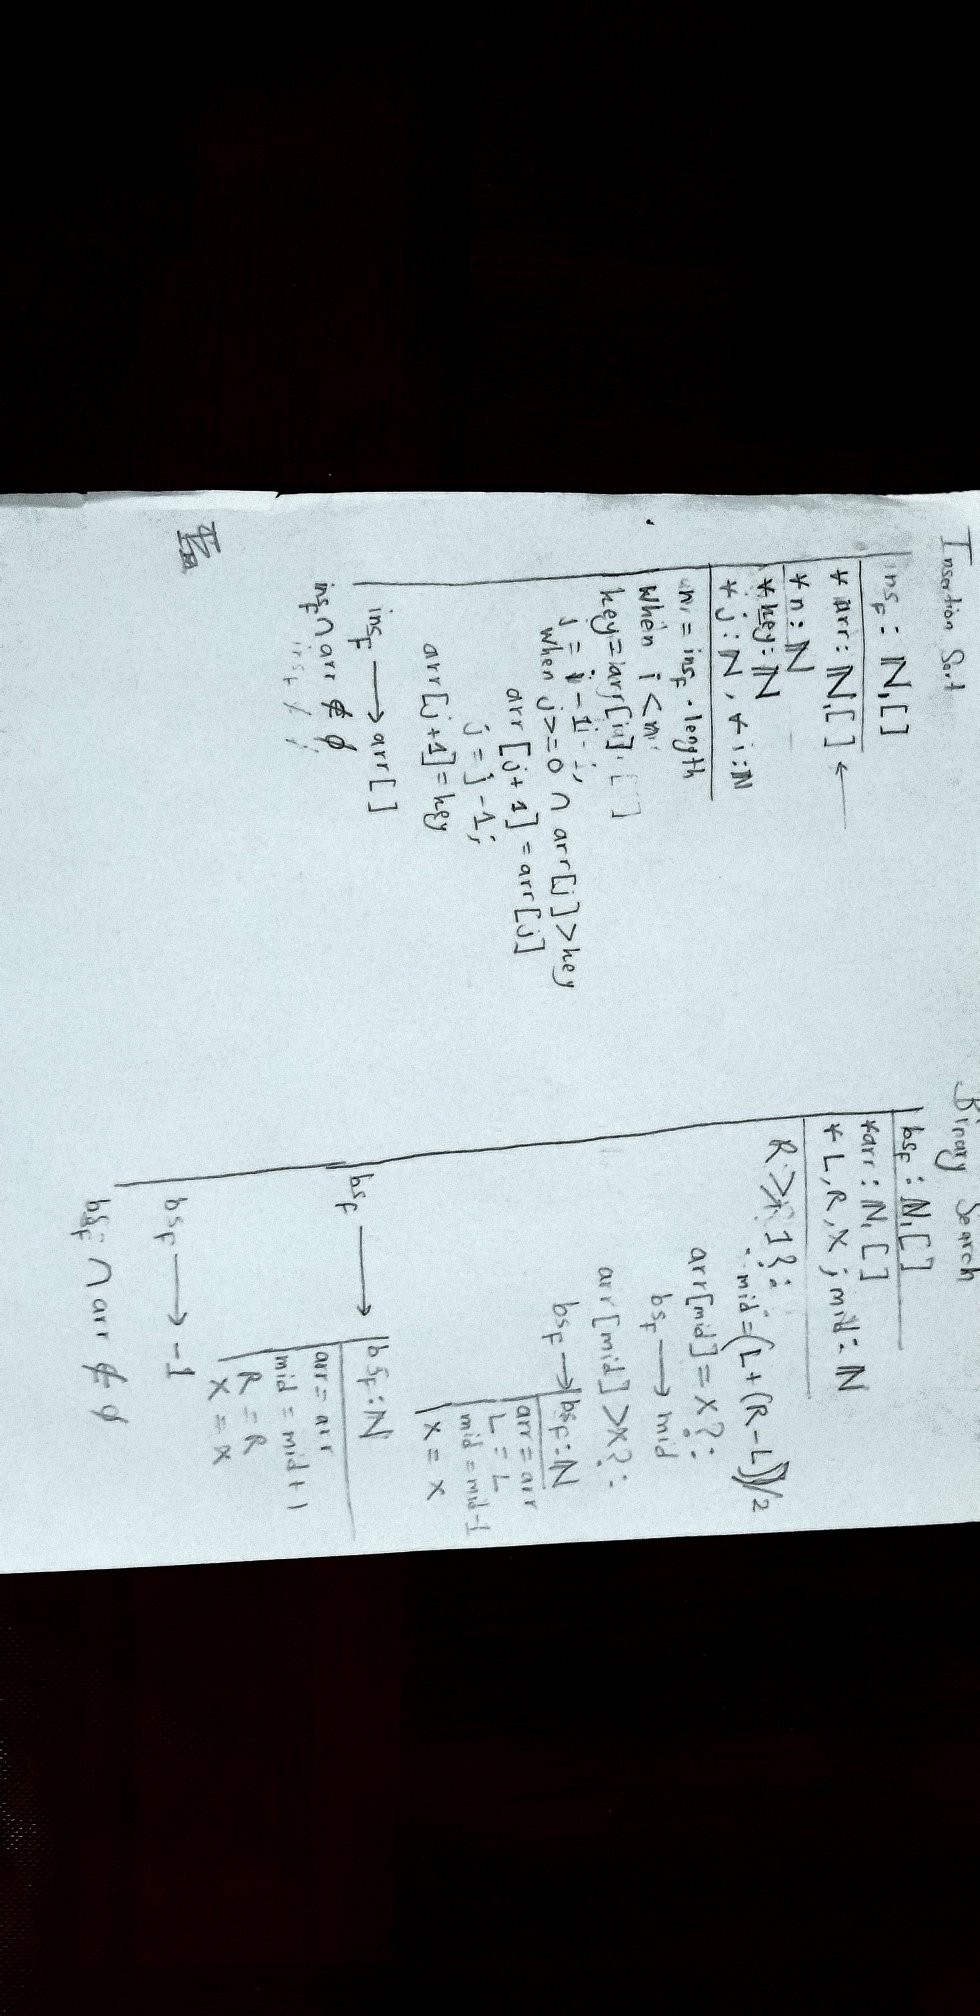 Insertion Sort
ins_F : ℕ,[]
* arr : ℕ,[] ←
* n : ℕ
* key : ℕ
* j : ℕ, * i : ℕ
= ins_F . length
When i <
key = arr[i]
j = i - 1 ;
when j >= 0 ∩ arr[j] > key
arr [j + 1] = arr [j]
j = j - 1;
arr[j+1] = key
ins_F → arr[]
ins_F ∩ arr ∉ ϕ
Binary Search
bs_F : ℕ,[]
*arr : ℕ,[]
* L, R, X ; mid : ℕ
R >= 1 ? :
mid = (L + (R - L))/2
arr[mid] = x ? :
bs_F → mid
arr[mid] > x ? :
bs_F → bs_F : ℕ
arr = arr
L = L
mid = mid - 1
X = X
bs_F → bs_F : ℕ
arr = arr
mid = mid + 1
R = R
X = X
bs_F → -1
bs_F ∩ arr ∉ ϕ